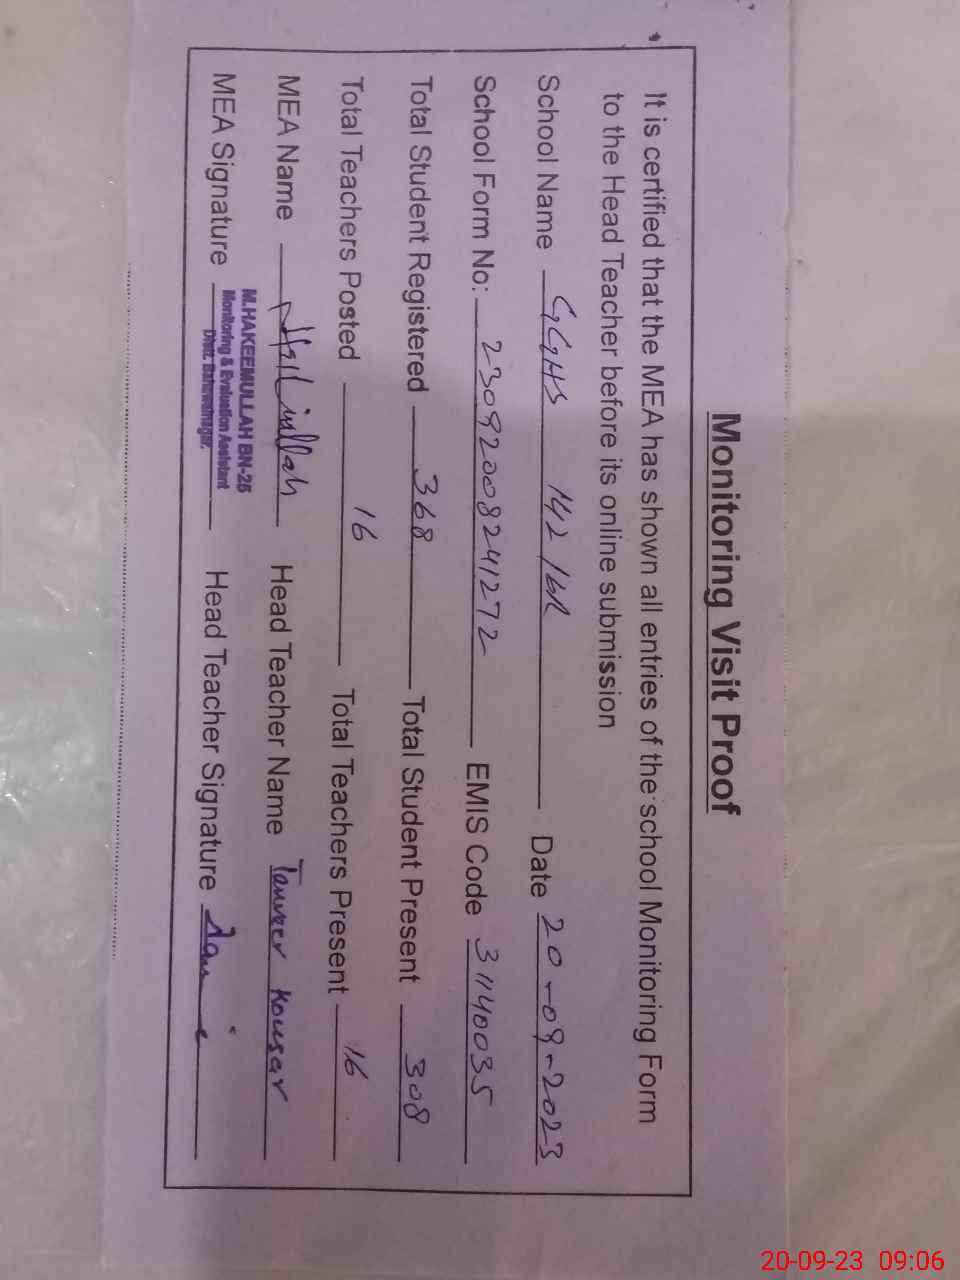 Monitoring Visit Proof
It is certified that the MEA has shown all entries of the school Monitoring Form
to the Head Teacher before its online submission
School Name GGHS 142/6R Date 20-09-2023
School Form No: 23092008241272 EMIS Code 31140035
Total Student Registered 368 Total Student Present 308
Total Teachers Posted 16 Total Teachers Present 16
MEA Name Head Teacher Name Tanveer Kousar
MEA Signature Head Teacher Signature
M.HAKEEMULLAH BN-25
Monitoring & Evaluation Assistant
Distt. Bahawalnagar.
20-09-23 09:06